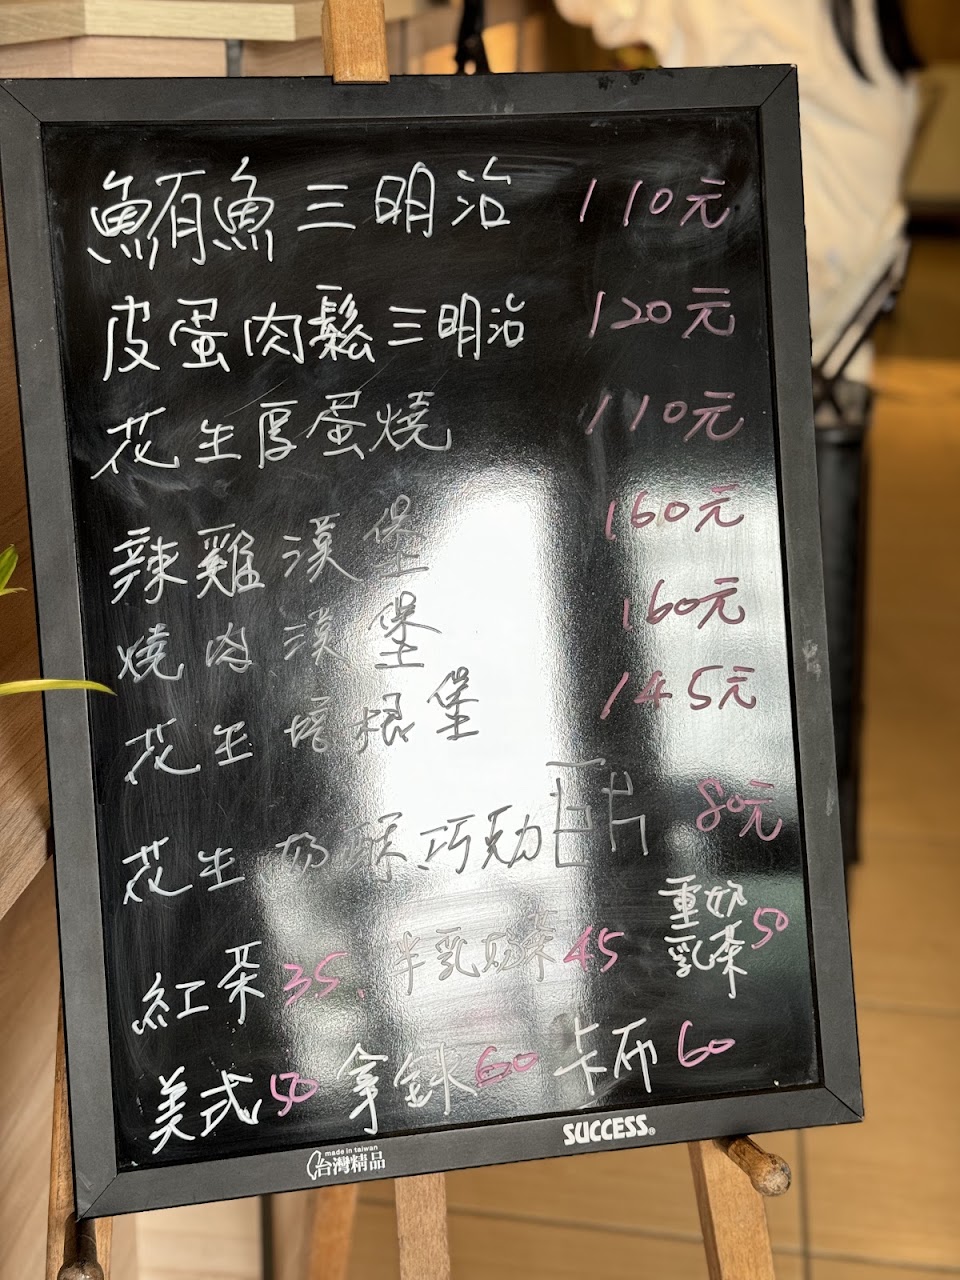 鮪魚三明治 110元
皮蛋肉鬆三明治 120元
花生厚蛋燒 110元
辣雞漢堡 160元
燒肉漢堡 160元
花生培根堡 145元
花生奶酥巧克力 吐司 80元
紅茶35. 半乳奶茶45 重奶乳茶50
美式50 拿鉄60 卡布60
SUCCESS®
made in taiwan
台灣精品